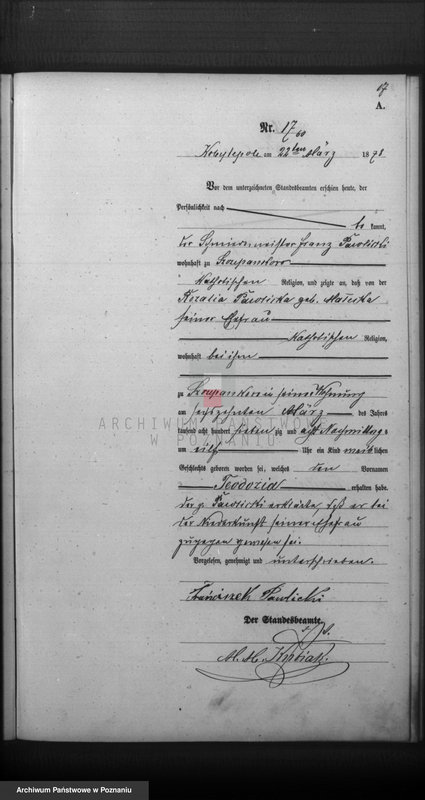 17
A.
Nr. 17
Kobylepole am 22ten März 1878
Vor dem unterzeichneten Standesbeamten erschien heute, der
Persönlichkeit nach
be kannt,
der Schmiedemeister Franz Pawlicki
wohnhaft zu
Katholischen Religion, und zeigte an, daß von der
Rozalia Pawlicka geb.
seiner Ehefrau
Katholischen Religion,
wohnhaft bei ihm
zu in seiner Wohnung
am sechszehnten März des Jahres
tausend acht hundert sieben zig und acht Nachmittag s
um eilf Uhr ein Kind weib lichen
Geschlechts geboren worden sei, welches den Vornamen
Teodozia erhalten habe.
der p. Pawlicki erklärte, daß er bei
der Niederkunft seiner Ehefrau
zugegen gewesen sei.
Vorgelesen, genehmigt und unterschrieben.
Franciszek Pawlicki
Der Standesbeamte.
ARCHIWUM PAŃSTWOWE
W POZNANIU
Archiwum Państwowe w Poznaniu